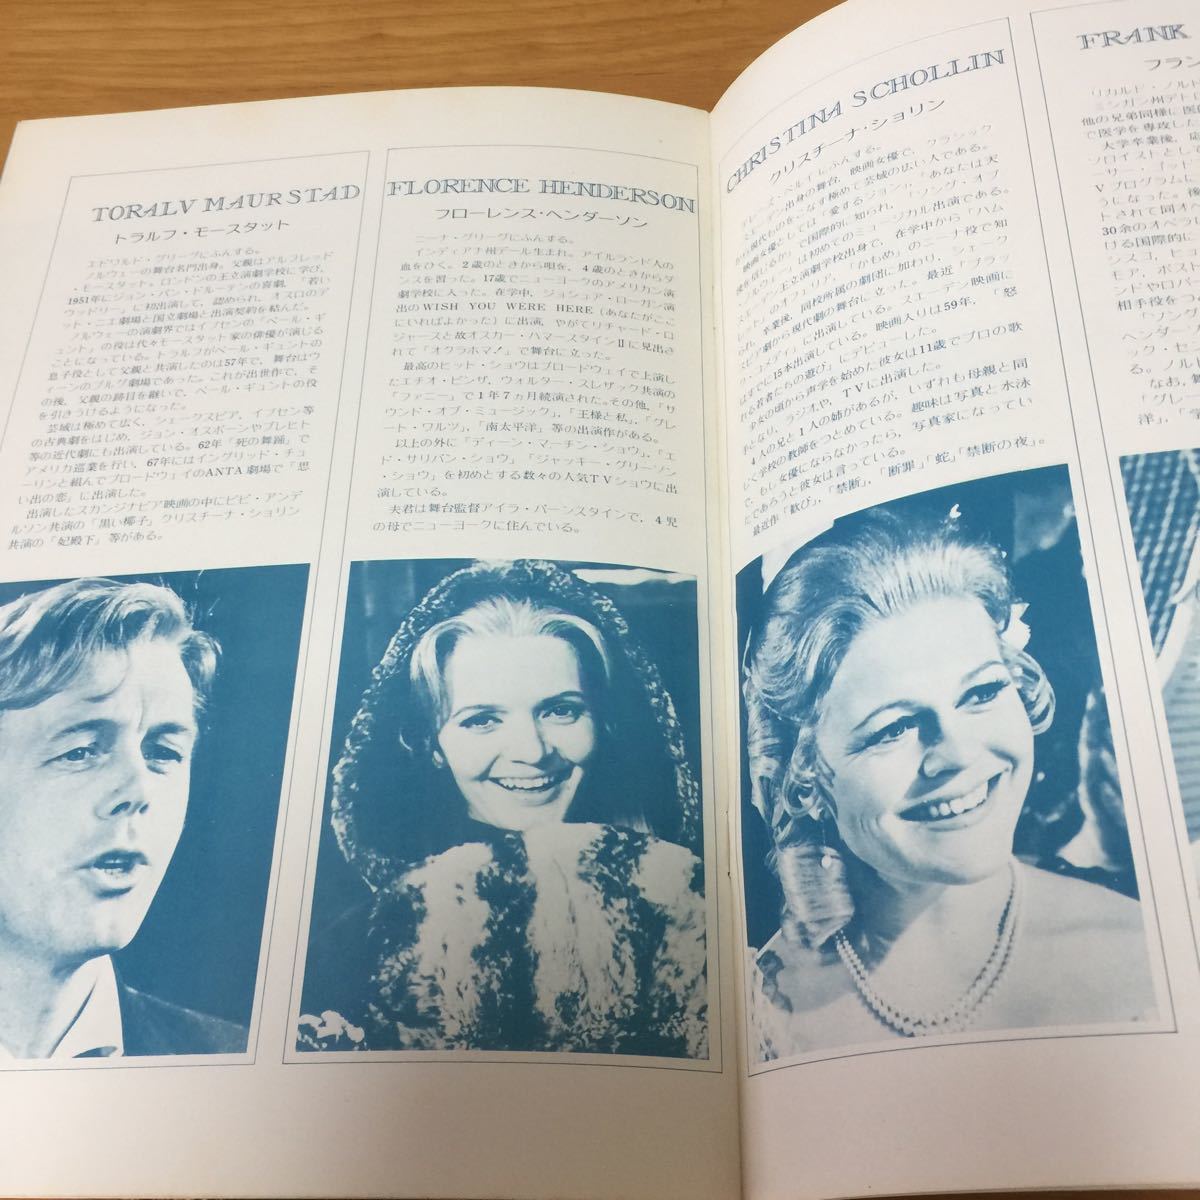 TORALV MAURSTAD
トラルフ・モースタット
エドワルド・グリーグにふんする。
ノルウェーの舞台名門出身。父親はアルフレッド
・モースタット。ロンドンの王立演劇学校に学び、
1951年にジョン・バン・ドルーテンの喜劇、「若い
ウッドリー」に初出演して、認められ、オスロのデ
ット・ニエ劇場と国立劇場と出演契約を結んだ。
ノルウェーの演劇界ではイプセンの「ペール・ギ
ュント」の役は代々モースタット家の俳優が演じる
ことになっている。トラルフがペール・ギュントの
息子役として父親と共演したのは57年で、舞台はウ
ィーンのブルグ劇場であった。これが出世作で、そ
の後、父親の跡目を継いで、ペール・ギュントの役
を引きうけるようになった。
芸域は極めて広く、シェークスピア、イプセン等
の古典劇をはじめ、ジョン・オスボーンやブレヒト
等の近代劇にも出演している。62年「死の舞踊」で
アメリカ巡業を行い、67年にはイングリッド・チュ
ーリンと組んでブロードウェイのANTA劇場で「思
い出の恋」に出演した。
出演したスカンジナビア映画の中にビビ・アンデ
ルソン共演の「黒い椰子」クリスチーナ・ショリン
共演の「妃殿下」等がある。
FLORENCE HENDERSON
フローレンス・ヘンダーソン
ニーナ・グリーグにふんする。
インディアナ州デール生まれ。アイルランド人の
血をひく。2歳のときから唄を、4歳のときからダ
ンスを習った。17歳でニューヨークのアメリカン演
劇学校に入った。在学中、ジョシュア・ローガン演
出のWISH YOU WERE HERE (あなたがここ
にいればよかった) に出演、やがてリチャード・ロ
ジャースと故オスカー・ハマースタインⅡに見出さ
れて「オクラホマ！」で舞台に立った。
最高のヒット・ショウはブロードウェイで上演し
たエチオ・ピンザ、ウォルター・スレザック共演の
「ファニー」で1年7ヵ月続演された。その他、「サ
ウンド・オブ・ミュージック」、「王様と私」、「グレ
ート・ワルツ」、「南太平洋」等の出演作がある。
以上の外に「ディーン・マーチン・ショウ」、「エ
ド・サリバン・ショウ」、「ジャッキー・グリーソン
・ショウ」を初めとする数々の人気TVショウに出
演している。
夫君は舞台監督アイラ・バーンスタインで、4児
の母でニューヨークに住んでいる。
CHRISTINA SCHOLLIN
クリスチーナ・ショリン
テレーズ・ベルイにふんする。
スエーデン出身の舞台、映画女優で、クラシック
から現代ものをこなす極めて芸域の広い人である。
映画女優としては「愛するカップル」、「あなたは天
使を信じるか」で国際的に知られ、「ソング・オブ
・ノルウェー」は初めてのミュージカル出演である。
スエーデン王立演劇学校出身で、在学中から「ハム
レット」のオフェリア、「かもめ」のニーナ役で知
られ、卒業後、同校所属の劇団に加わり、シェーク
スピア劇から現代劇の舞台に立った。最近「ブラッ
ク・コメディ」に出演している。スエーデン映画に
はすでに15本出演している。映画入りは59年、「怒
れる若者たちの遊び」にデビューした。
少女の頃から声学を始めた彼女は11歳でプロの歌
手となり、ラジオや、TVに出演した。
4人の兄と1人の姉があるが、いずれも母親と同
じく学校の教師をつとめている。趣味は写真と水泳
で、もし女優にならなかったら、写真家になってい
たであろうと彼女は言っている。
最近作「歓び」、「禁断」、「断罪」「蛇」「禁断の夜」。
FRANK
フラン
リカルド・ノルド
ミシガン州デトロ
他の兄弟同様に医
で医学を専攻した
大学卒業後、応
ソロイストとして
ーサー・ゴッド
TVプログラムに
トされて同オペ
30余のオペラ
ける国際的に
シスコ、ヒュ
モア、ボスト
ンドやロバー
相手役をつ
「ソング
ヘンダーソ
ック・セン
る。ノル
なお、舞
「グレー
洋」、「キ